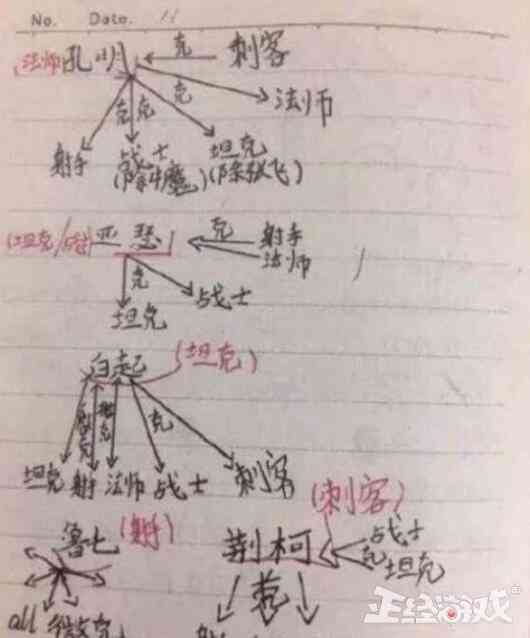 No. Date.
法师 孔明 克 刺客
克 克 克 法师
射手 战士 坦克
(除牛魔) (除张飞)
(坦克/战士) 亚瑟 克 射手
法师
克 战士
坦克
白起 (坦克)
克 克
坦克 射 法师 战士 刺客
鲁七 (射) (刺客)
荆柯 战士
克 坦克
all 微克 克
正经游戏